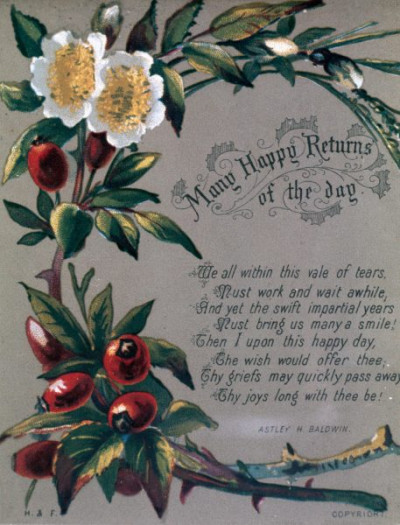 Many Happy Returns
of the day
We all within this vale of tears,
Must work and wait awhile,
And yet the swift impartial years
Must bring us many a smile!
Then I upon this happy day,
The wish would offer thee,
Thy griefs may quickly pass away
Thy joys long with thee be!
ASTLEY H. BALDWIN.
H. & F.
COPYRIGHT